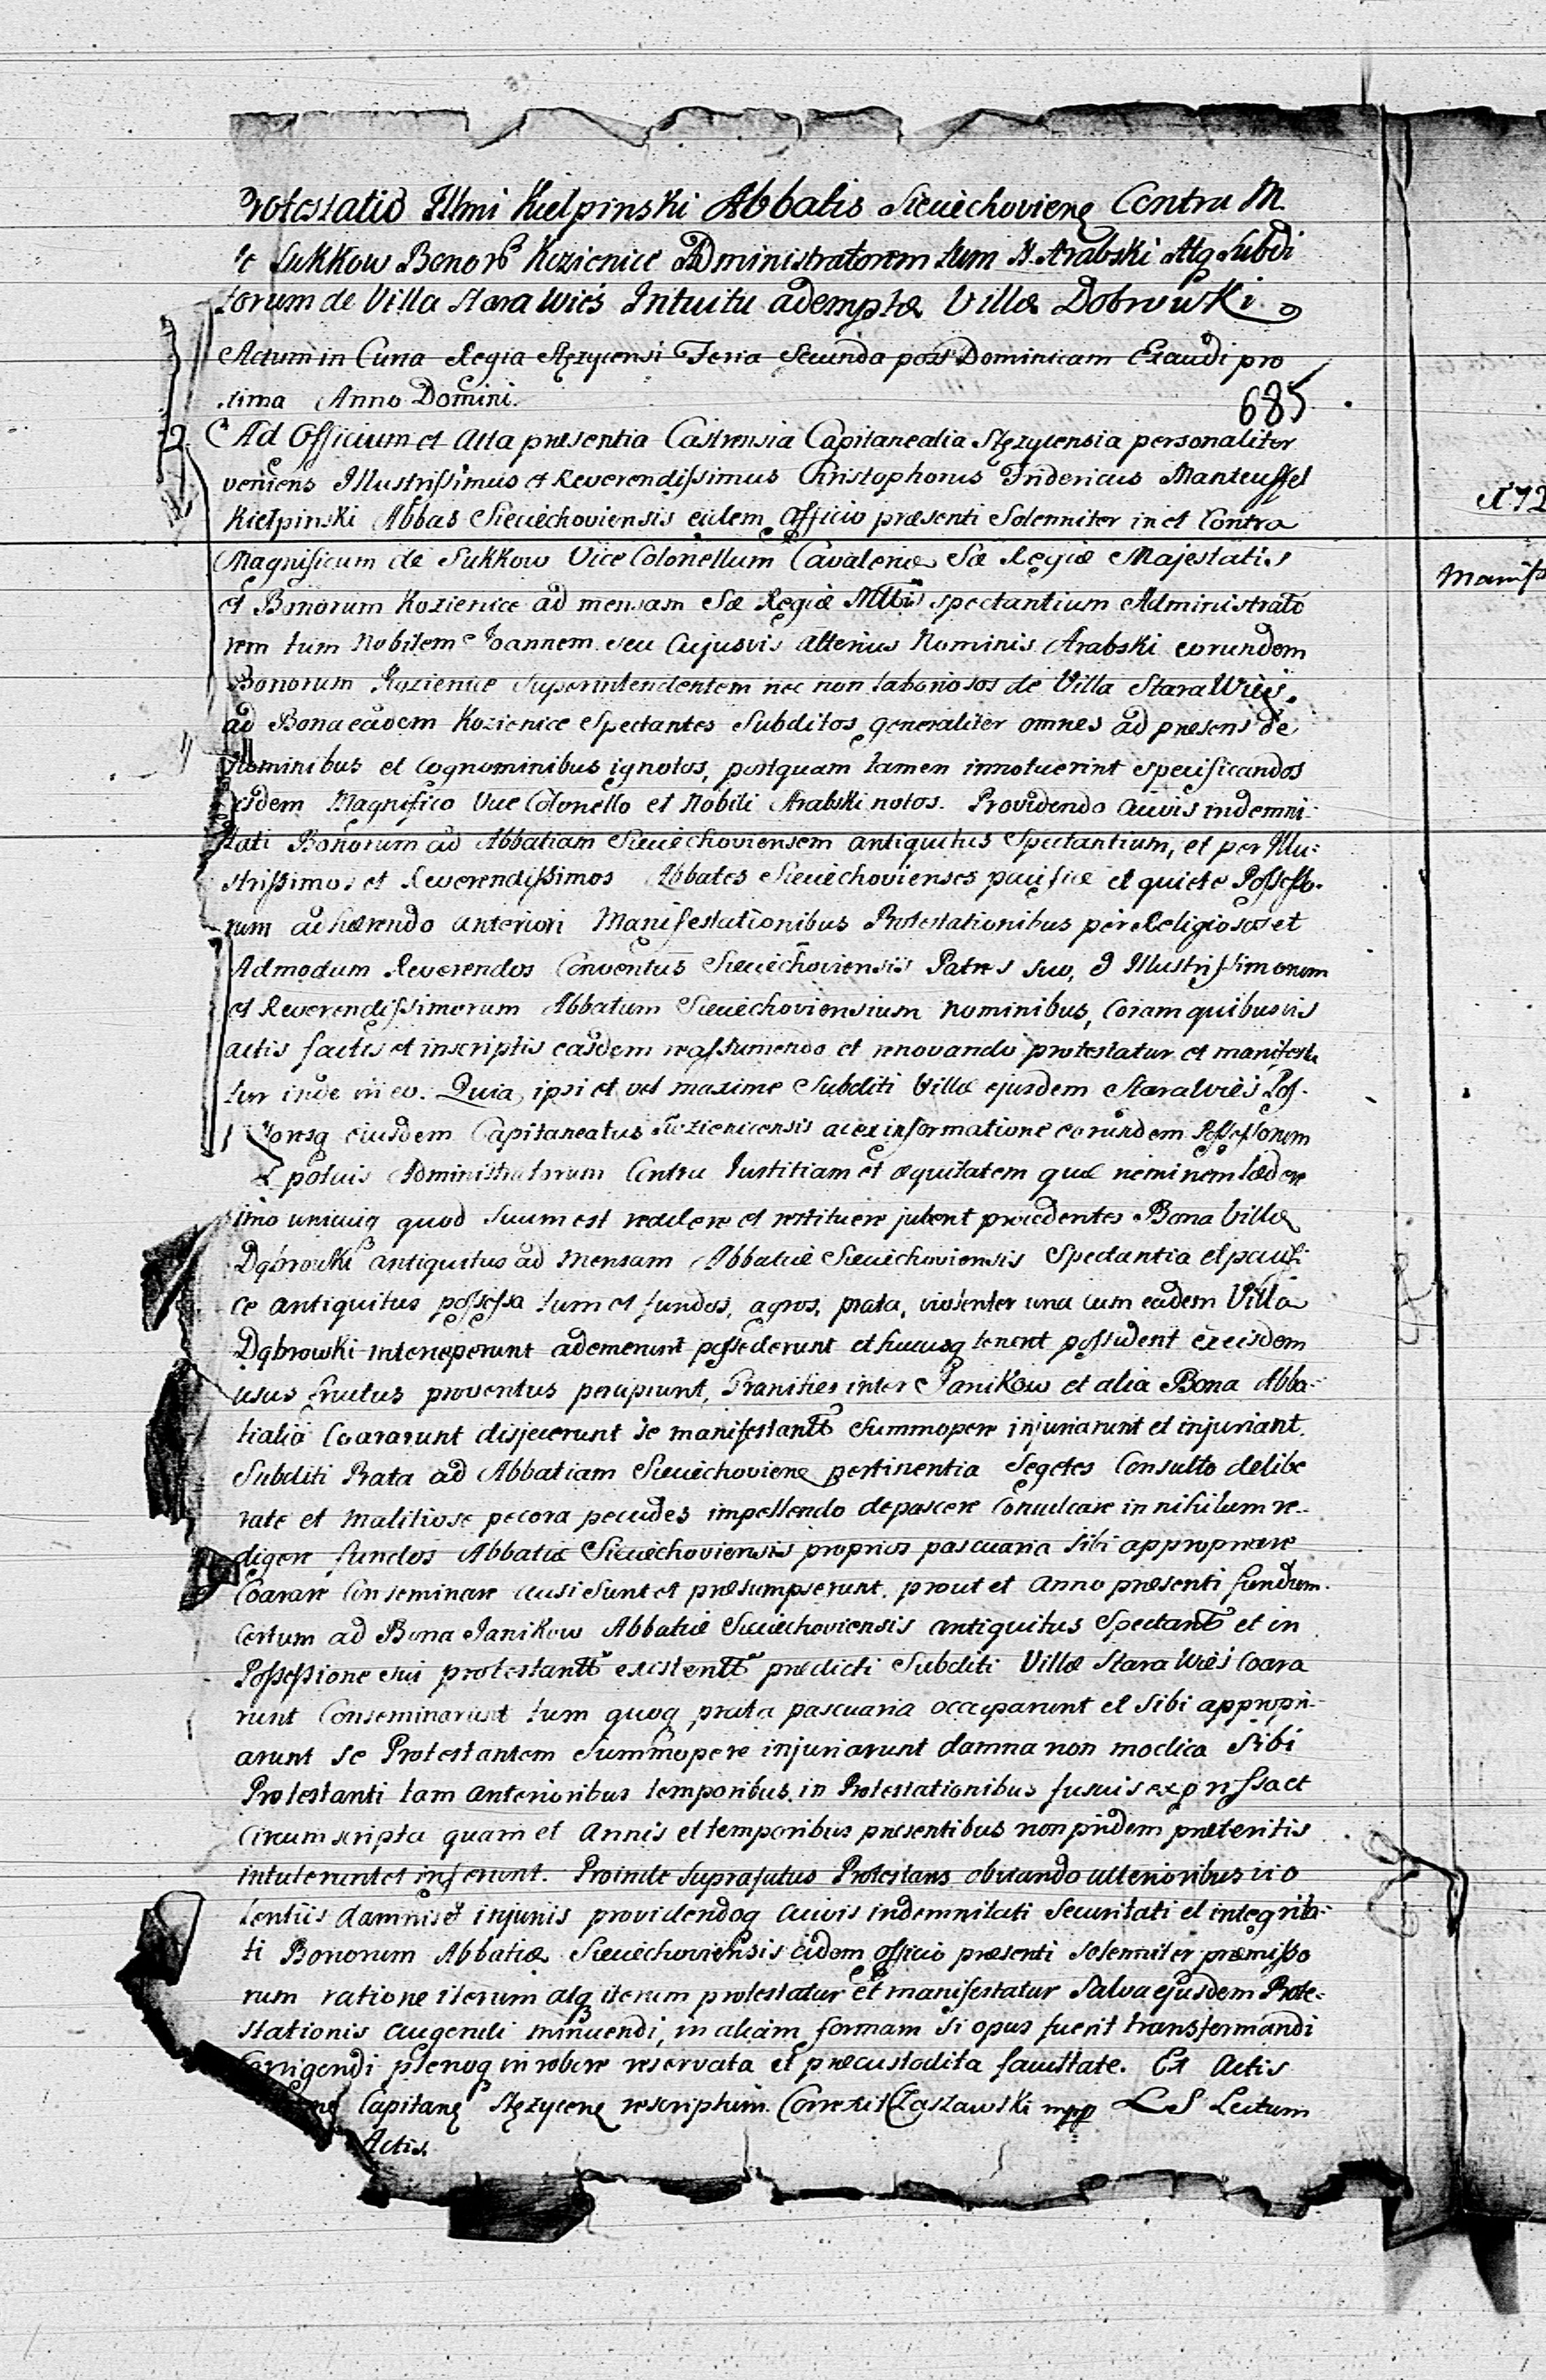 Protestatio Illmi Kielpinski Abbatis Sieciechoviens Contra M.
de Sukkow Bonor Kozienice Administratorem tum N. Arabski Atq Subdi
torum de Villa Stara Wies Intuitu ademptæ Villæ Dobrowki
Actum in Curia Regia Stęzycensi Feria Secunda post Dominicam Exaudi pro
xima Anno Domini. 685
Ad Officium et Acta præsentia Castrensia Capitanealia Stęzycensia personaliter
veniens Illustrissimus et Reverendissimus Christophorus Fridericus Manteuffel
Kiełpinski Abbas Sieciechoviensis eidem officio præsenti Solenniter in et Contra
Magnificum de Sukkow Vice Colonellum Cavaleriæ Sæ Regiæ Majestatis
et Bonorum Kozienice ad mensam Sæ Regiæ Mttis spectantium Administrato
rem tum Nobilem Joannem seu Cujusvis alterius Nominis Arabski eorundem
Bonorum Kozienice Superintendentem nec non laboriosos de Villa Stara Wieś
ad Bona eadem Kozienice Spectantes Subditos generaliter omnes ad præsens de
Nominibus et Cognominibus ignotos, postquam tamen innotuerint specificandos
eisdem Magnifico Vice Colonello et Nobili Arabski notos. Providendo cuivis indemni:
tati Bonorum ad Abbatiam Sieciechoviensem antiquitus Spectantium, et per Illu:
strissimos et Reverendissimos Abbates Sieciechovienses pacifice et quiete Possesso.
rum adhærendo anteriori Manifestationibus Protestationibus per Religiosos et
Admodum Reverendos Conventus Sieciechoviensis Patres suo, & Illustrissimorum
et Reverendissimorum Abbatum Sieciechoviensium nominibus, Coram quibusvis
actis factis et inscriptis easdem reassumendo et renovando protestatur et manifesta
tur inde in eo. Quia ipsi et vel maxime Subditi Villæ ejusdem Stara Wieś Pos.
soresq eiusdem Capitaneatus Kozienicensis ac ex informatione eorundem Possessorum
potius Administratorum Contra Justitiam et æquitatem quæ neminem lædere
imo unicuiq quod suum est reddere et restituere jubent procedentes Bona Villæ
Dąbrowki antiquitus ad Mensam Abbatiæ Sieciechoviensis Spectantia et pacifi
ce antiquitus possessa tum et fundos, agros, prata, violenter una cum eadem Villa
Dąbrowki interceperunt ademerunt possederunt et hucusq tenent possident ex eisdem
usus fructus proventus percipiunt, Granities inter Janikow et alia Bona Abba:
tialia Coararunt disjecerunt se manifestantt Summopere injuriarunt et injuriant.
Subditi Prata ad Abbatiam Sieciechoviens pertinentia Segetes Consulto delibe
rate et malitiose pecora pecudes impellendo depascere Conculcare in nihilum re-
digere fundos Abbatiæ Sieciechoviensis proprios pascuaria sibi appropriare
Coarare Conseminare ausi sunt et præsumpserunt. prout et Anno præsenti fundum.
Certum ad Bona Janikow Abbatiæ Sieciechoviensis antiquitus Spectant et in
Possessione sui protestantt existentt prædicti Subditi Villæ Stara Wieś Coara
runt Conseminarunt tum quoq prata pascuaria occuparunt et Sibi appropri-
arunt se Protestantem Summopere injuriarunt damna non modica Sibi
Protestanti tam anterioribus temporibus in Protestationibus fusius expressa et
Circumscripta quam et Annis et temporibus præsentibus non pridem præteritis
intulerunt et inferunt. Proinde Suprafatus Protestans obviando ulterioribus vio
lentiis damnis et injuriis providendoq cuivis indemnitati Securitati et integrita-
ti Bonorum Abbatiæ Sieciechoviensis eidem officio præsenti solenniter præmisso
rum ratione iterum atq iterum protestatur et manifestatur Salva ejusdem Prote-
stationis augendi minuendi, in aliam formam si opus fuerit transformandi
Corrigendi plenoq in robore reservata et præcustodita facultate. Ex Actis
Capitan Stęzycen rescriptum. Correxit Czasławski mpp LS Lectum
Actis.